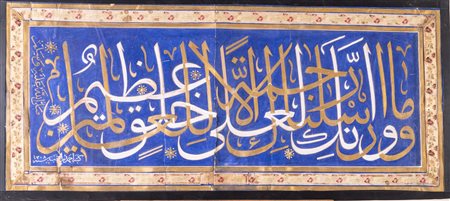 وما ارسلناك الا رحمة للعالمين
وانك لعلى خلق عظيم